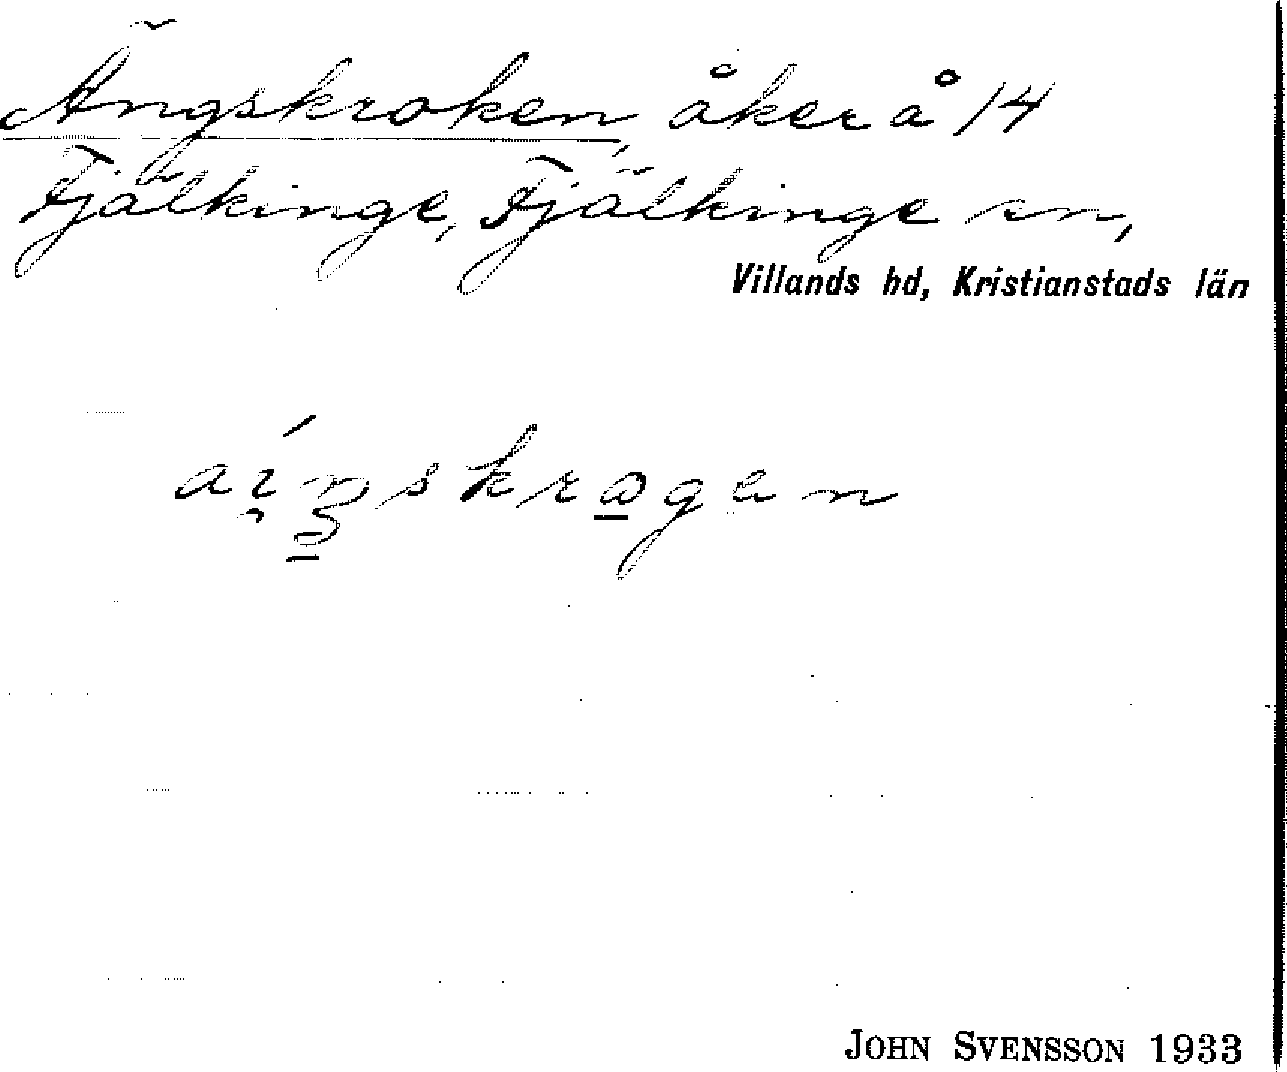 Ängskroken, åker å 14
Fjälkinge, Fjälkinge sn,
Villands hd, Kristianstads län
JOHN SVENSSON 1933